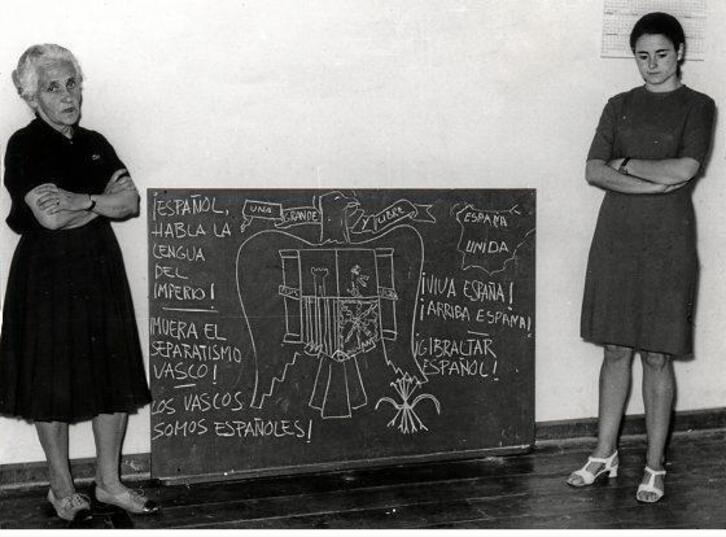 ¡ESPAÑOL,
HABLA LA
LENGUA
DEL
IMPERIO!
¡MUERA EL
SEPARATISMO
VASCO!
LOS VASCOS
SOMOS ESPAÑOLES!
UNA
GRANDE
Y LIBRE
PLUS
ESPAÑA
UNIDA
¡VIVA ESPAÑA!
¡ARRIBA ESPAÑA!
¡GIBRALTAR
ESPAÑOL!